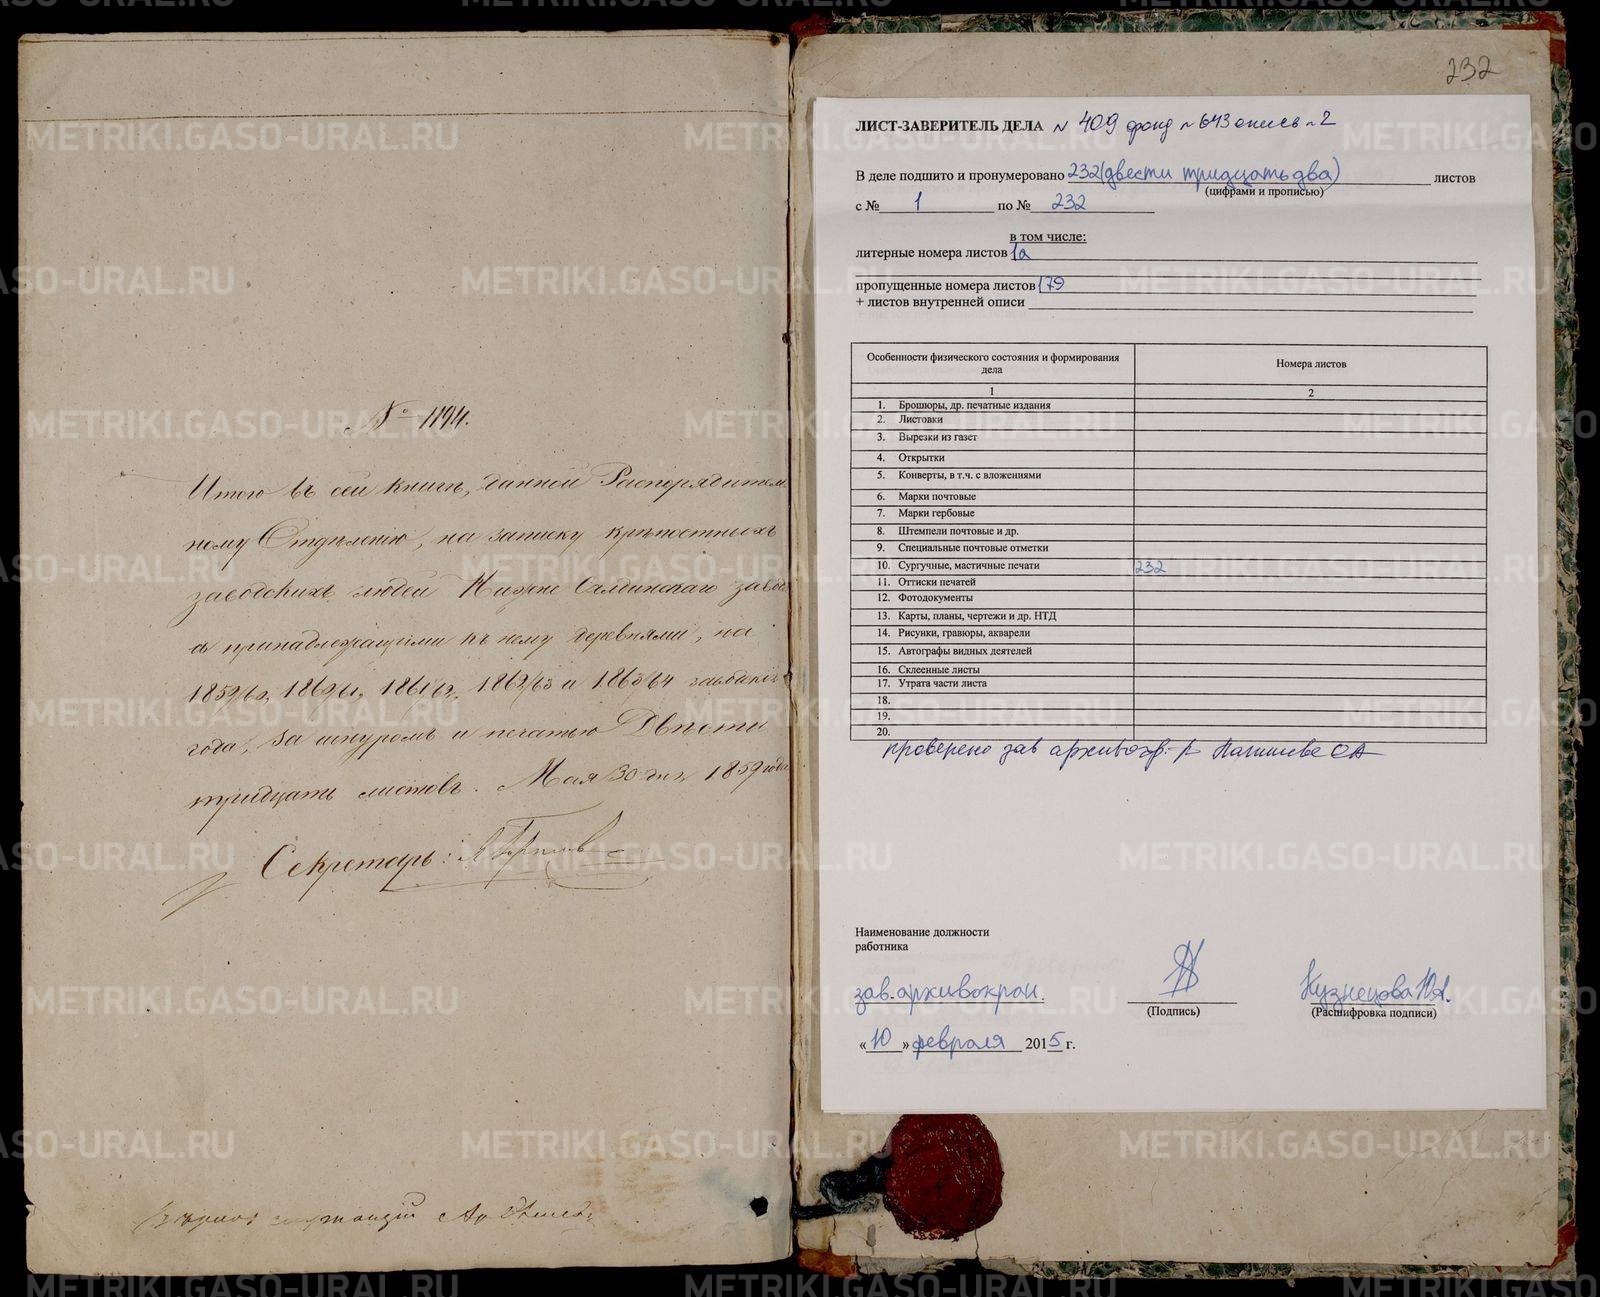 № 1194.
Итого въ сей книгѣ, данной Распорядитель
ному Отдѣленію, на записку крѣпостныхъ
заводскихъ людей Нижне Салдинскаго завода
съ принадлежащими къ нему деревнями, на
1859/60, 1860/61, 1861/62, 1862/63 и 1863/64 заводскіе
года, за шнуромъ и печатью Двѣсти
тридцать листовъ. Мая 30 дня 1859 года
Секретарь:
232
ЛИСТ-ЗАВЕРИТЕЛЬ ДЕЛА № 409 фонд № 643 опись № 2
В деле подшито и пронумеровано 232 (двести тридцать два) листов
(цифрами и прописью)
с № 1 по № 232
в том числе:
литерные номера листов 1а
пропущенные номера листов 179
+ листов внутренней описи
Особенности физического состояния и формирования дела Номера листов
1 2
1. Брошюры, др. печатные издания
2. Листовки
3. Вырезки из газет
4. Открытки
5. Конверты, в т.ч. с вложениями
6. Марки почтовые
7. Марки гербовые
8. Штемпели почтовые и др.
9. Специальные почтовые отметки
10. Сургучные, мастичные печати 232
11. Оттиски печатей
12. Фотодокументы
13. Карты, планы, чертежи и др. НТД
14. Рисунки, гравюры, акварели
15. Автографы видных деятелей
16. Склеенные листы
17. Утрата части листа
18.
19.
20.
проверено зав архивохр.
Наименование должности
работника
зав. архивохран.
(Подпись)
Кузнецова Ю.А.
(Расшифровка подписи)
« 10 » февраля 2015 г.
METRIKI.GASO-URAL.RU